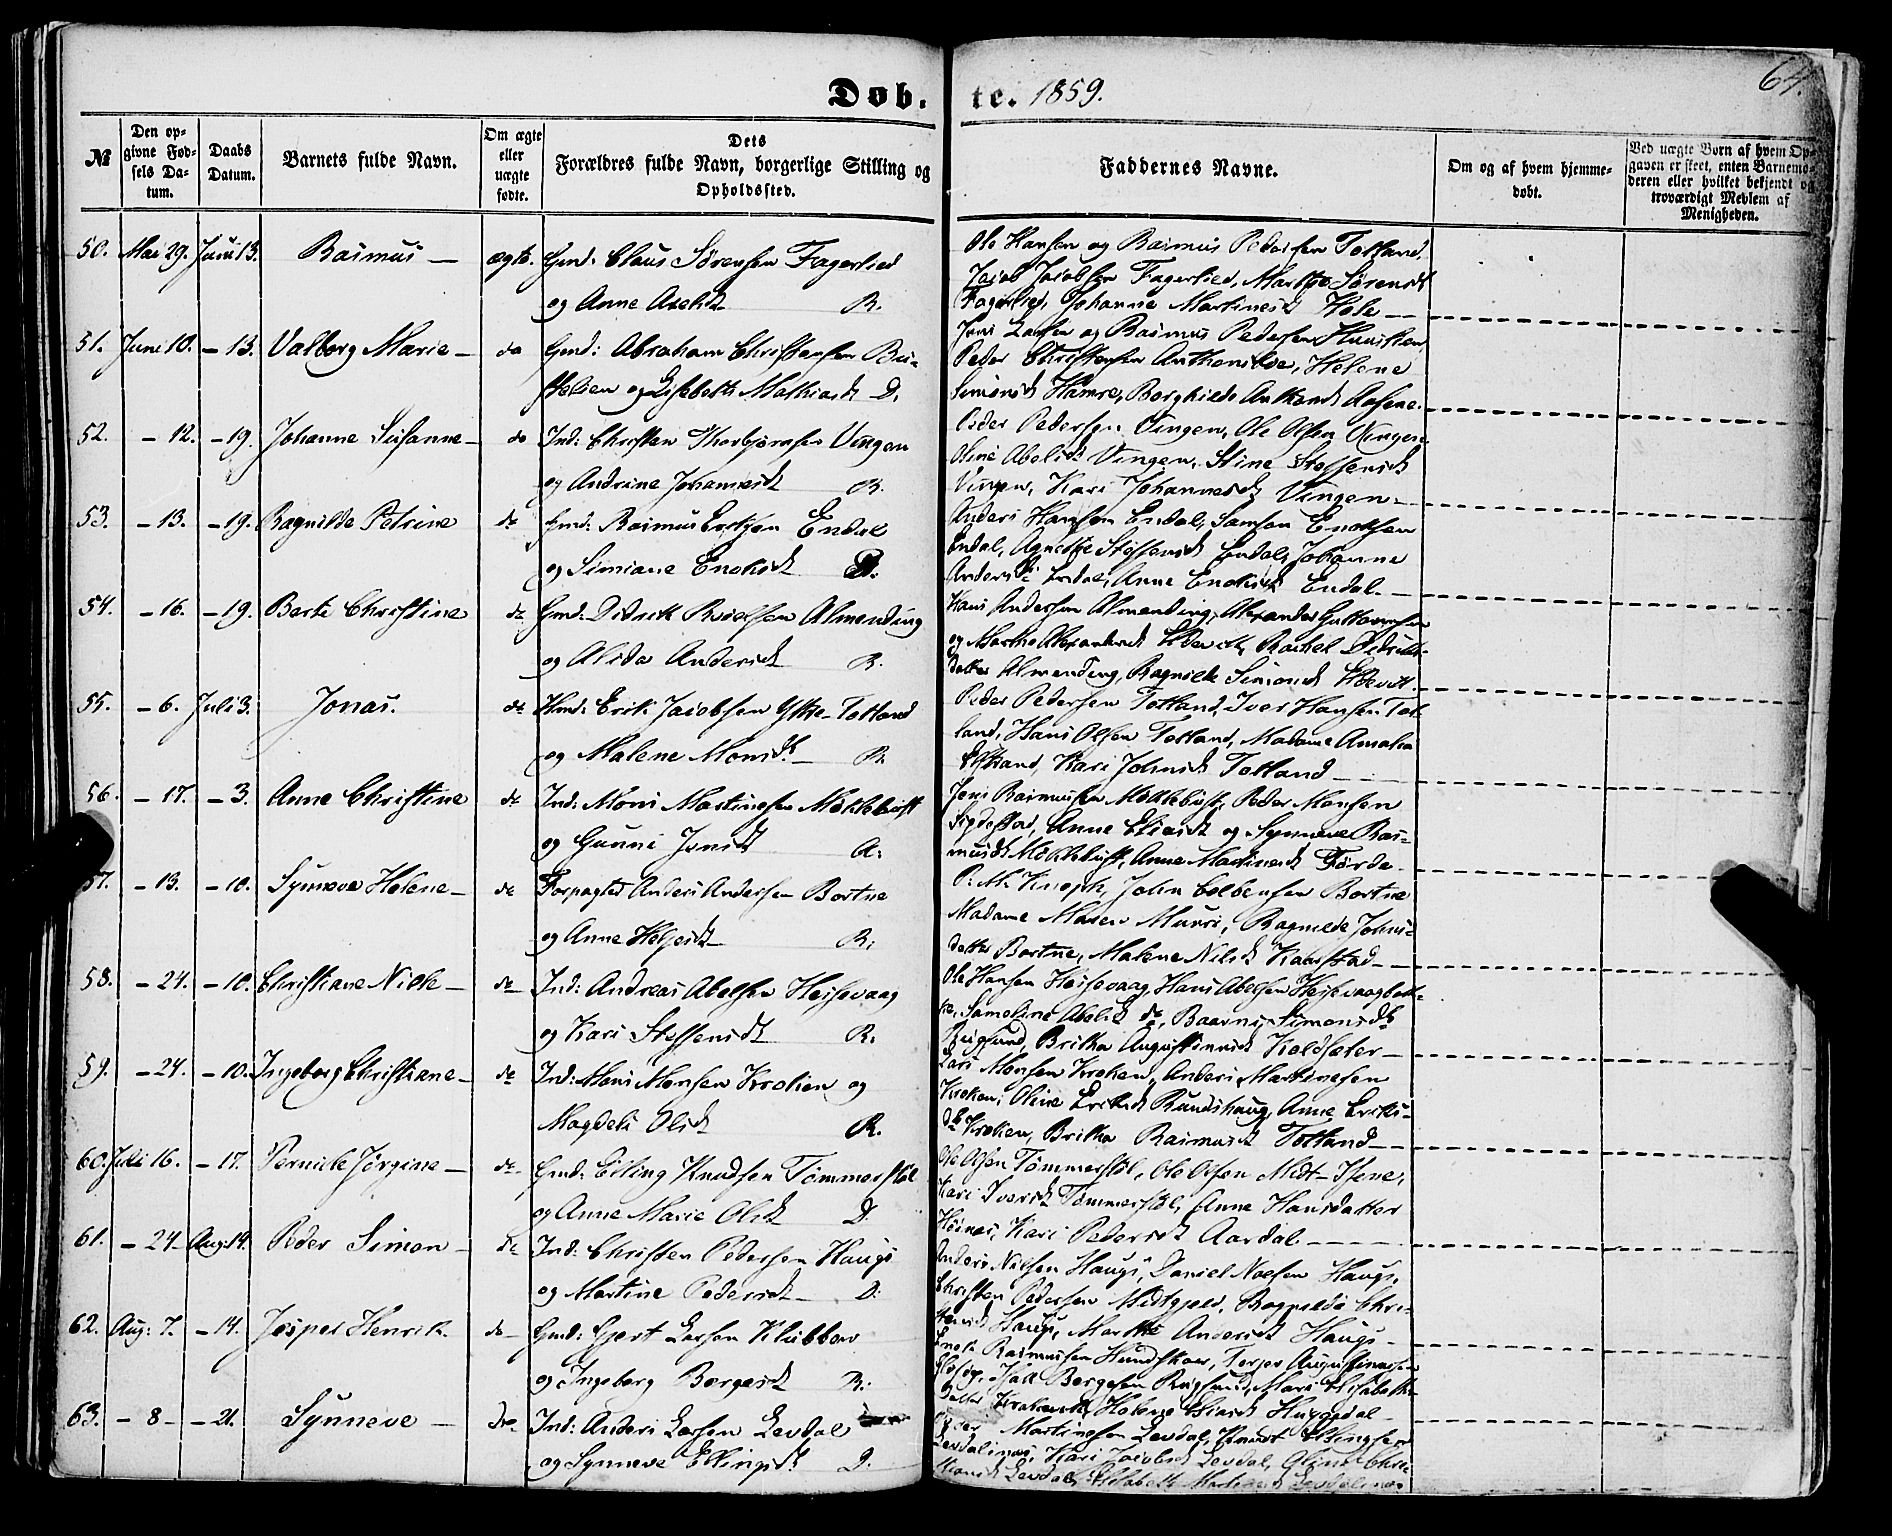 64.
Døb. te. 1859.
№
Den opgivne Fødsels Datum.
Daabs Datum.
Barnets fulde Navn.
Om ægte eller uægte fødte.
Dets Forældres fulde Navn, borgerlige Stilling og Opholdssted.
Faddernes Navne.
Om og af hvem hjemmedøbt.
Ved uægte Børn af hvem Opgaven er skeet, enten Barnemoderen eller hvilket bekjendt og troværdigt Medlem af Menigheden.
50. Mai 29. Juni 13. Rasmus — ægte. Gmd: Claus Sørensen Fagerlied
og Anne Abelsdt R.
Ole Hansen og Rasmus Pedersen Totland,
Jacob Jacobsen Fagerlied, Marthe Sørensdt
Fagerlied, Johanne Martinesdt Hole —
51. Juni 10. — 13. Valborg Marie — do Gmd: Abraham Christensen
og Lisbeth Mathiasdt D.
Jens Larsen og Rasmus Pedersen
Peder Christensen Helene
Simonsdt Hamre, Borghilde Anthonsdt Aasene.
52. — 12. — 19. Johanne Susanne — do Ind: Christen Thorbjørnsen Vingen
og Andrine Johannesdt R.
Peder Pedersen Vingen, Ole Olsen Vingen,
Oline Abelsdt Vingen, Stine Steffensdt
Vingen, Kari Johannesdt Vingen —
53. — 13. — 19. Ragnilde Petrine do Gmd: Rasmus Endal
og Simiane Enoksdt R.
Anders Hansen Endal, Samson Enoksen
Endal, Agnethe Steffensdt Endal, Johanne
Andersdt Endal, Anne Enoksdt Endal —
54. — 16. — 19. Berte Christine do Gmd: Didrik Almending
og Alida Andersdt R.
Hans Andersen Almending, Alexander
og Marthe Alexandersdt Rachel Didriks-
datter Almending, Ragnilde Simonsdt
55. — 6. Juli 3. Jonas. do Hmd: Erik Jacobsen Ytre-Totland
og Malene Monsdt — R.
Peder Pedersen Totland, Iver Hansen Tot-
land, Hans Olsen Totland, Madame Amalia
Kari Johnsdt Totland —
56. — 17. — 3. Anne Christine do Ind: Mons Martinesen Møklebust
og Gunni Jonsdt A.
Jens Rasmusen Møklebust, Peder Monsen
Anne Eliasdt og Synneve Ras-
musdt Møklebust, Anne Martinesdt Førde —
57. — 13. — 10. Synneve Helene — do Forpagter Anders Andersen Bortne
og Anne Helgesdt R.
P. M. Knoph, John Colbensen Bortne
Madame Maren Ragnilde Johns-
datter Bortne, Malene Nilsdt Kaarstad —
58. — 24. — 10. Christiane Nille — do Ind: Andreas Abelsen Heissevaag
og Kari Steffensdt R.
Ole Hansen Heissevaag, Hans Abelsen Heissevaag
Sameline Abelsdt do, Simonsdt
Rugsund, Britha Augustinusdt Koldsæter —
59. — 24. — 10. Ingeborg Christiane — do Ind: Mons Monsen Kroken og
Magdeli Olsdt R.
Lars Monsen Kroken, Anders Martinesen
Kroken, Oline Eriksdt Rundshaug, Anne Eriks-
dt Kroken, Britha Rasmusdt Totland —
60. Juli 16. — 17. Pernille Jørgine — do Gmd: Elling Knudsen Tømmerstøl
og Anne Marie Olsdt D.
Ole Olsen Tømmerstøl, Ole Olsen Midt-Isene,
Kari Iversdt Tømmerstøl, Anne Hansdatter
Kari Pedersdt Aardal —
61. — 24 — Aug: 14. Peder Simon — do Ind: Christen Pedersen Haugs
og Martine Pedersdt — D.
Anders Nilsen Haugs, Daniel Haugs,
Christen Pedersen Midtgjeld, Ragnilde Chri-
stensdt Haugs, Marthe Andersdt Haugs —
62. Aug: 7. — 14. Jesper Henrik. do Gmd: Gjert Larsen Klubben
og Ingeborg Børgesdt R.
Enok Rasmusen Hundskaar, Terjer Augustinussen
Isak Børgesen Rugsund, Mari Elisabeth
datter Helene Eliasdt Huggedal —
63. — 8 — — 21. Synneve — do Ind: Anders Larsen Levdal
og Synneve Ellingsdt D.
Martinesen Levdal, Knud Ellingsen
Levdalsnes, Kari Jacobsdt Levdal, Oline Chri-
stiansdt Levdal, Elisabeth